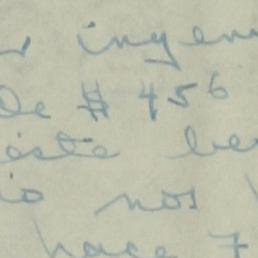 ingen
De $ 456
este be
io nos
hace 7